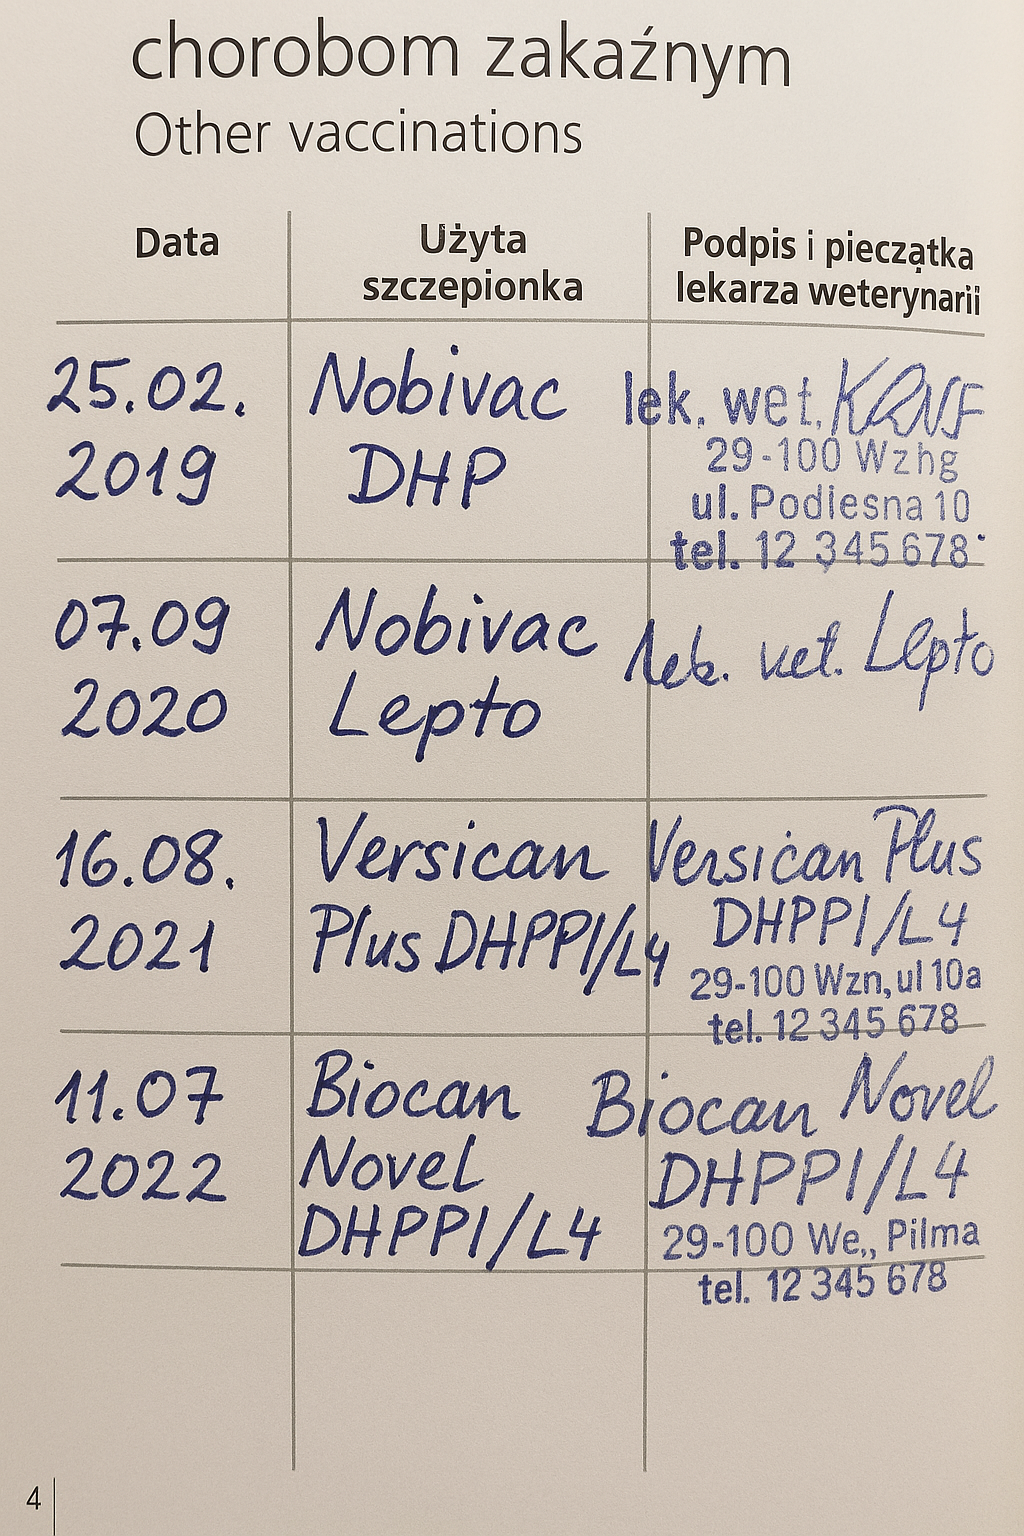 chorobom zakaźnym
Other vaccinations
Data
Użyta
szczepionka
Podpis i pieczątka
lekarza weterynarii
25.02.
2019
Nobivac
DHP
lek. wet.
29-100 Wzhg
ul. Podlesna 10
tel. 12 345 678
07.09
2020
Nobivac
Lepto
vet. Lepto
16.08.
2021
Versican
Plus DHPPI/L4
Versican Plus
DHPPI/L4
29-100 Wzn, ul 10a
tel. 12 345 678
11.07
2022
Biocan
Novel
DHPPI/L4
Biocan Novel
DHPPI/L4
29-100 We,, Pilma
tel. 12 345 678
4